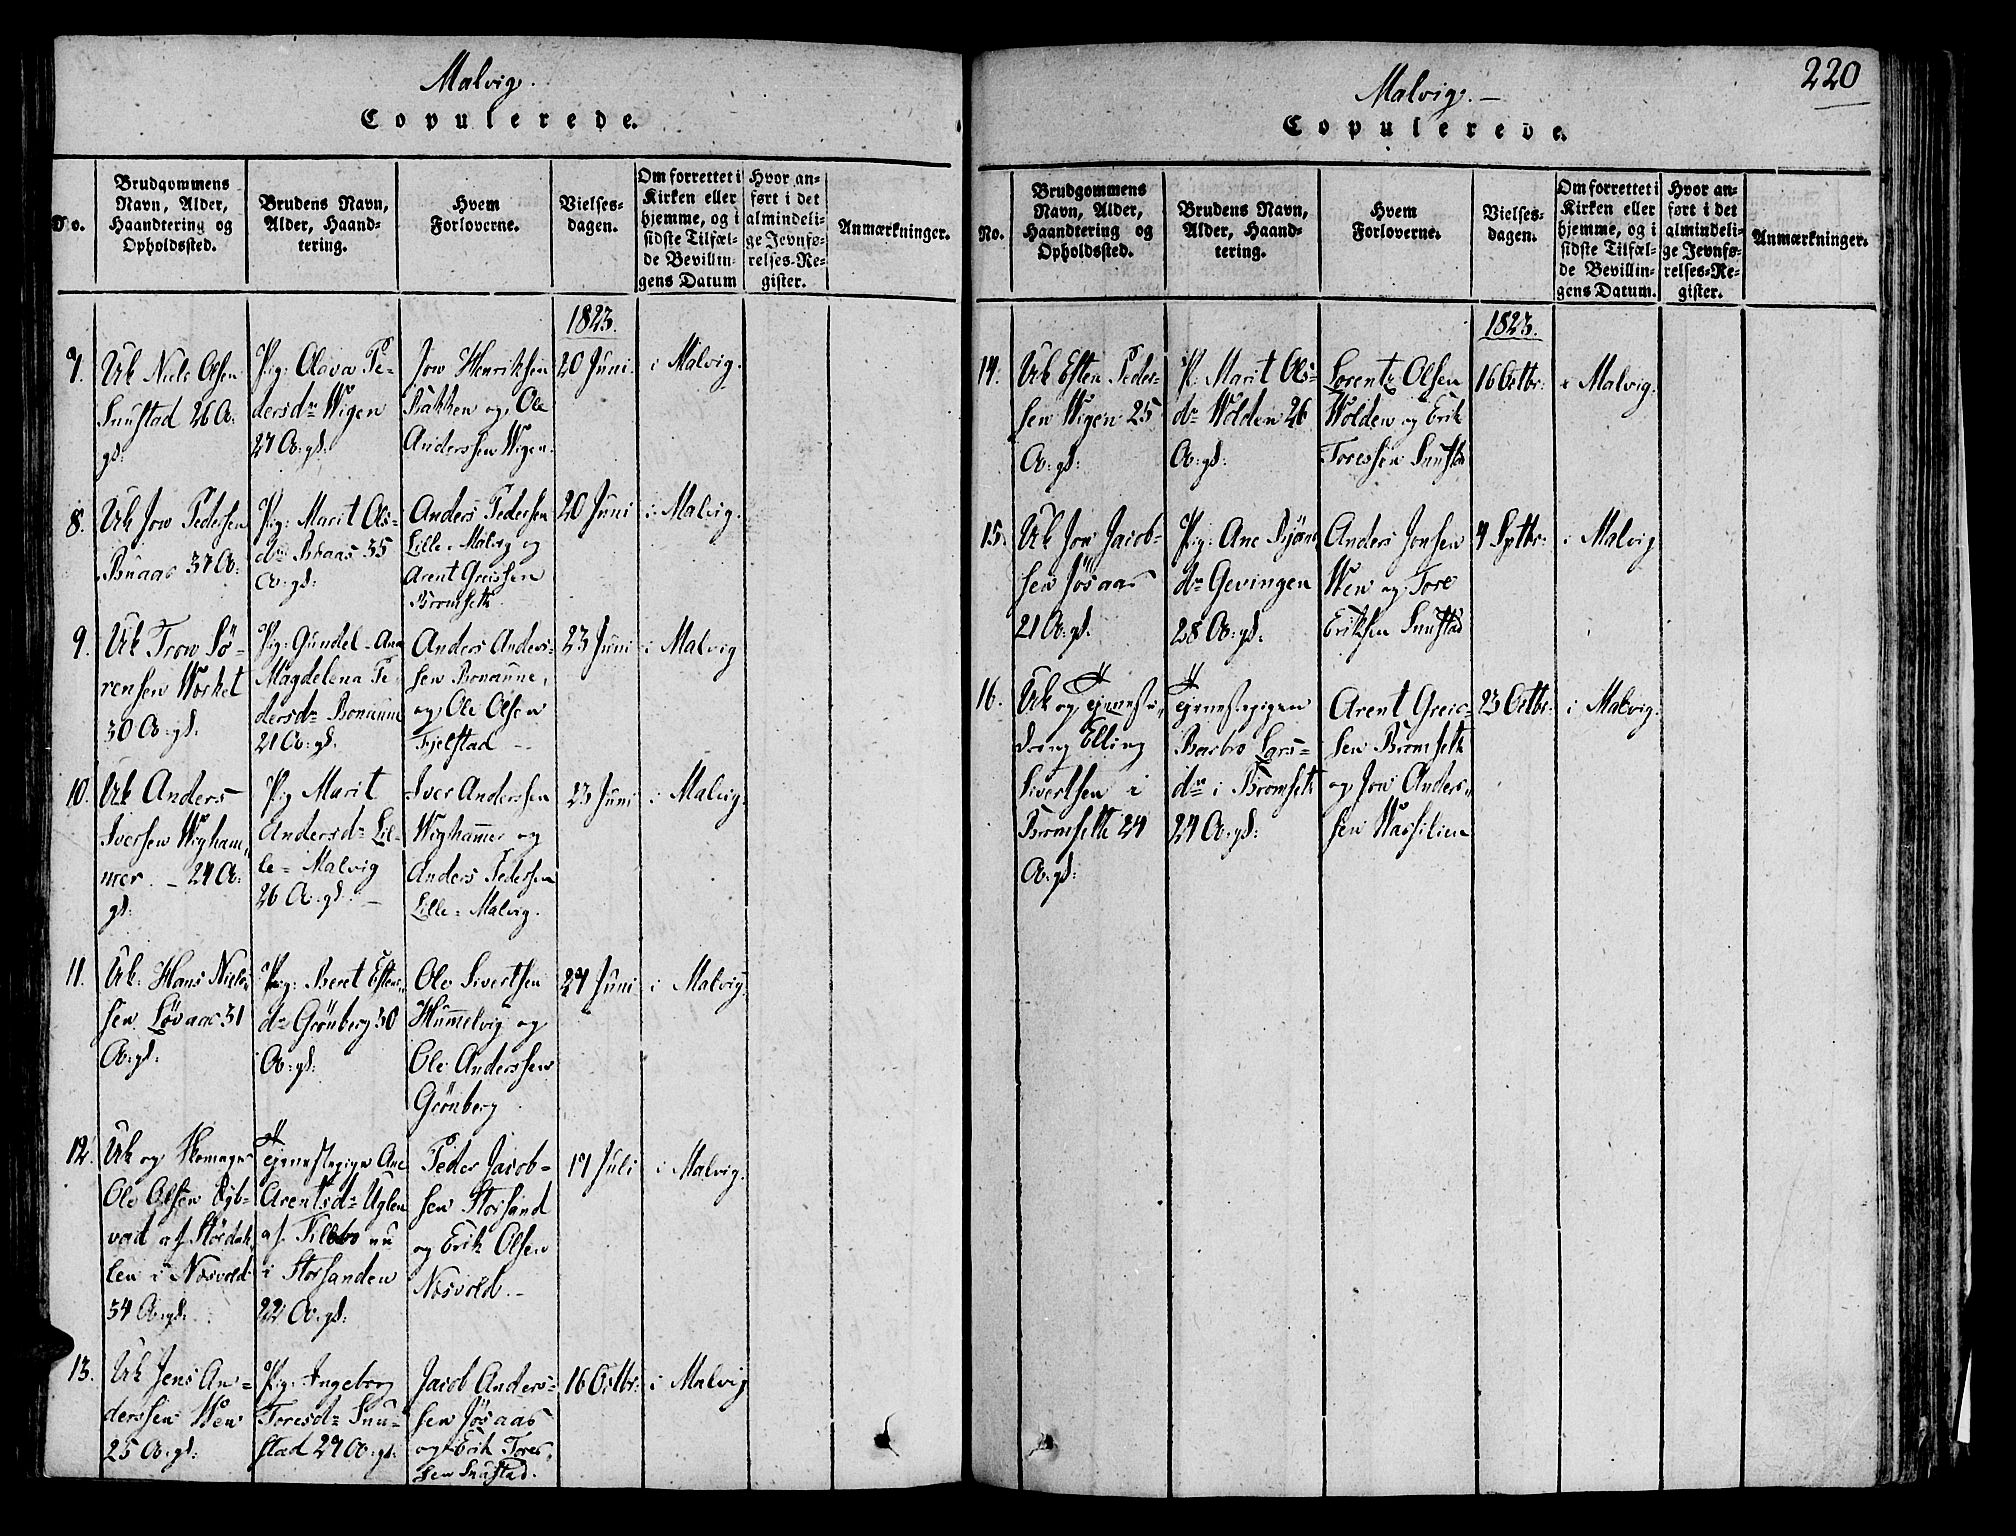 Malvig.
Copulerede.
No.
Brudgommens Navn, Alder, Haandtering og Opholdssted.
Brudens Navn, Alder, Haandtering.
Hvem Forloverne.
Vielsesdagen.
Om forrettet i Kirken eller hjemme, og i sidste Tilfælde Bevillingens Datum
Hvor anført i det almindelige Jevnførelses-Register.
Anmærkninger.
1823.
7.
Uk Niels Olsen
Snustad 26 A:
gl:
Pig: Olava Pe-
dersdr Wigen
27 A: gl:
Jon Henriksen
Bakken og Ole
Anderssen Wigen.
20 Juni.
i Malvig.
8.
Uk Jon Pedersen
Buaas 37 A:
Pig: Marit Ols-
dr Buaas 35
A: gl:
Anders Pedersen
Lille-Malvig og
Arent Greissen
Bromseth.
20 Juni
i Malvig.
9.
Uk Tron Sö-
rensen Wærket
30 A: gl:
Pig: Gundel-Ana
Magdelena Pe-
dersdr Bonaune
21 A: gl.
Anders Anders-
sen Bonaune,
og Ole Olsen
Fjelstad -
23 Juni
i Malvig
10.
Uk Anders
Iversen Wigham-
mer. - 24 A:
gl:
Pig Marit
Andersdr Lil-
le-Malvig
26 A: gl: -
Iver Anderssen
Wighammer og
Anders Pedersen
Lille-Malvig.
23 Juni
i Malvig.
11.
Uk: Hans Niels-
sen Lövaas 31
A: gl:
Pig: Beret Estens-
dr Grönberg 30
A: gl:
Ole Sivertsen
Hummelvig og
Ole Anderssen
Grönberg.
27 Juni
i Malvig.
12.
Uk og Skomager
Ole Olsen
af Stördah-
len i Næsvold
34 A: gl:
Tjenestepige Ane
Arentsdr Uglen
af Tilbo nu
i Storsanden
22 A: gl:
Peder Jacob-
sen Storsand
og Erik Olsen
Næsvold. -
17 Juli
i Malvig.
13.
Uk Jens An-
derssen Wen
25 A: gl:
Pig: Ingeborg
Toresdr Snu-
stad 27 A: gl:
Jacob Anders-
sen Jösaas
og Erik Tores-
sen Snustad.
16 Octbr:
i Malvig
220
Malvig. -
Copulerede.
No.
Brudgommens Navn, Alder, Haandtering og Opholdssted.
Brudens Navn, Alder, Haandtering.
Hvem Forloverne.
Vielsesdagen.
Om forrettet i Kirken eller hjemme, og i sidste Tilfælde Bevillingens Datum.
Hvor anført i det almindelige Jevnførelses-Register.
Anmærkninger.
1823.
14.
Uk Esten Peder-
sen Wigen 25
A: gl:
P. Marit Ols-
dr Wolden 26
A: gl:
Lorentz Olsen
Wolden og Erik
Toressen Snustad
16 Octbr:
i Malvig.
15.
Uk Jon Jacob-
sen Jösaas
21 A: gl.
Pig: Ane Björns
dr Gevingen
28 A: gl:
Anders Jonsen
Wen og Tore
Eriksen Snustad
4 Sptbr:
i Malvig
16.
Uk og Tjeneste-
dreng Elling
Sivertsen i
Bromseth 24
A: gl:
Tjenestepigen
Barbro Lars-
dr i Bromseth
24 A: gl:
Arent Greis-
sen Bromseth
og Jon Anders-
sen Hassilien
23 Octbr:
i Malvig.